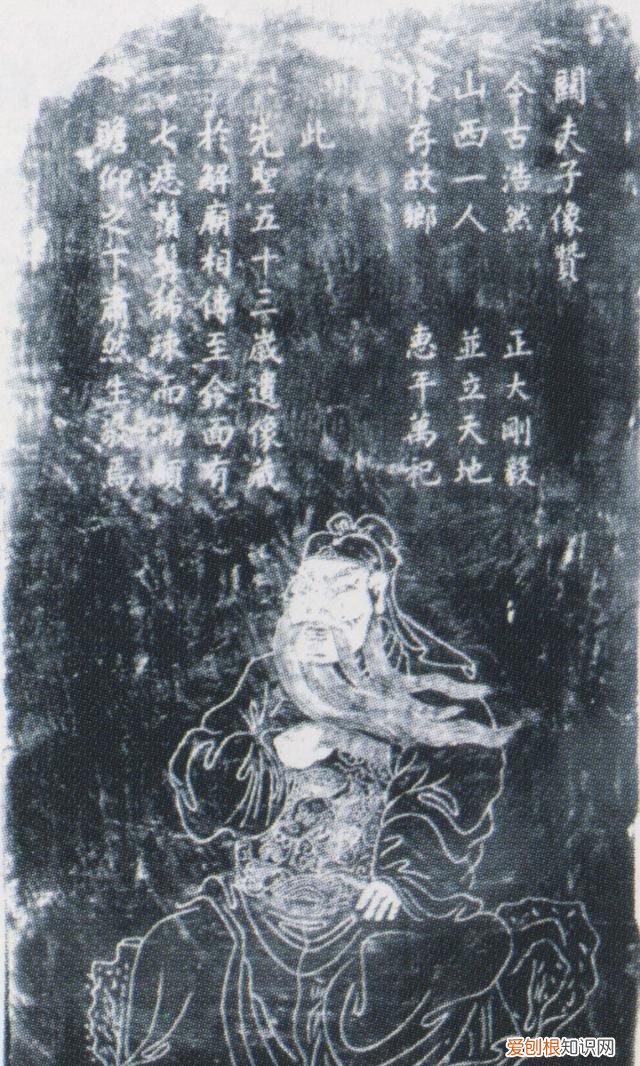 關夫子像贊
今古浩然 正大剛毅
山西一人 並立天地
像存故鄉 惠平萬祀
此
先聖五十三歲遺像藏
於解廟相傳至今面有
七痣鬚髯稀疎而滿頤
瞻仰之下肅然生敬焉
爱刨根知识网